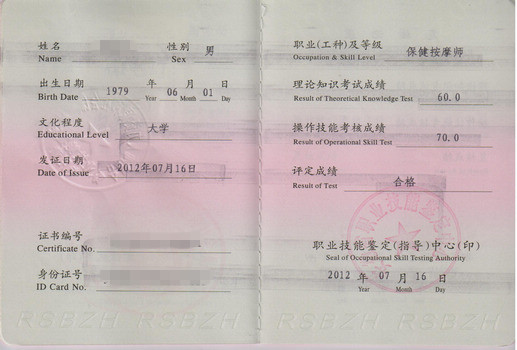 姓名 性别 男
Name Sex
出生日期 1979 年 06 月 01 日
Birth Date Year Month Day
文化程度 大学
Educational Level
发证日期 2012年07月16日
Date of Issue
证书编号
Certificate No.
身份证号
ID Card No.
RSBZH RSBZH
职业(工种)及等级 保健按摩师
Occupation & Skill Level
理论知识考试成绩
Result of Theoretical Knowledge Test 60.0
操作技能考核成绩 70.0
Result of Operational Skill Test
评定成绩 合格
Result of Test
职业技能鉴定(指导)中心(印)
Seal of Occupational Skill Testing Authority
2012 年 07 月 16 日
Year Month Day
RSBZH RSBZH